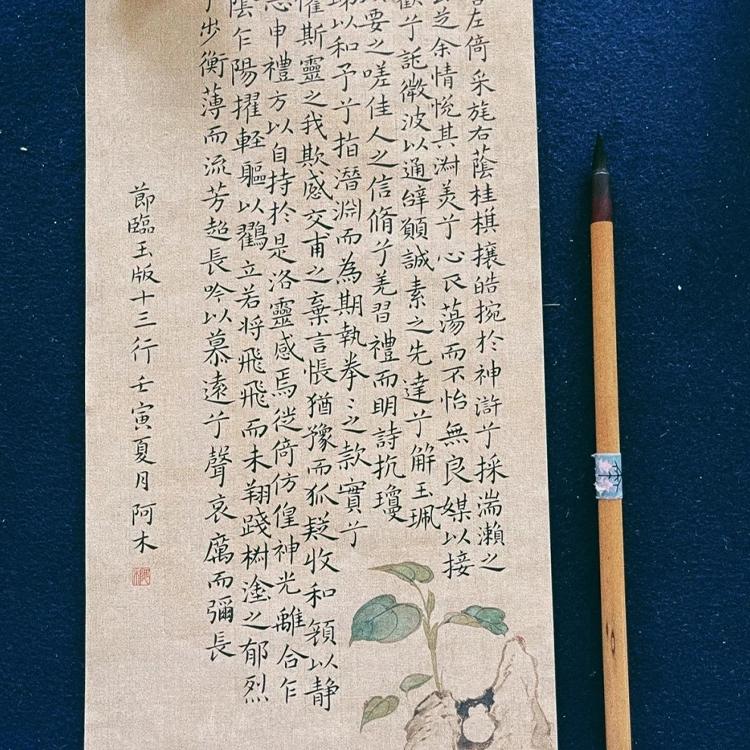 左倚采旄右蔭桂棋攘皓捥於神滸兮採湍瀨之
芝余情悅其淑美兮心蕩而不怡無良媒以接
懽兮託微波以通辭願誠素之先達兮解玉珮
要之嗟佳人之信脩兮羌習禮而明詩抗瓊
珶以和予兮指潛淵而為期執拳〻之款實兮
懼斯靈之我欺感交甫之棄言悵猶豫而狐疑收和顏以靜
志申禮方以自持於是洛靈感焉徙倚仿偟神光離合乍
陰乍陽擢輕軀以鶴立若將飛飛而未翔踐椒塗之郁烈
步衡薄而流芳超長吟以慕遠兮聲哀厲而彌長
節臨玉版十三行 壬寅夏月 阿木